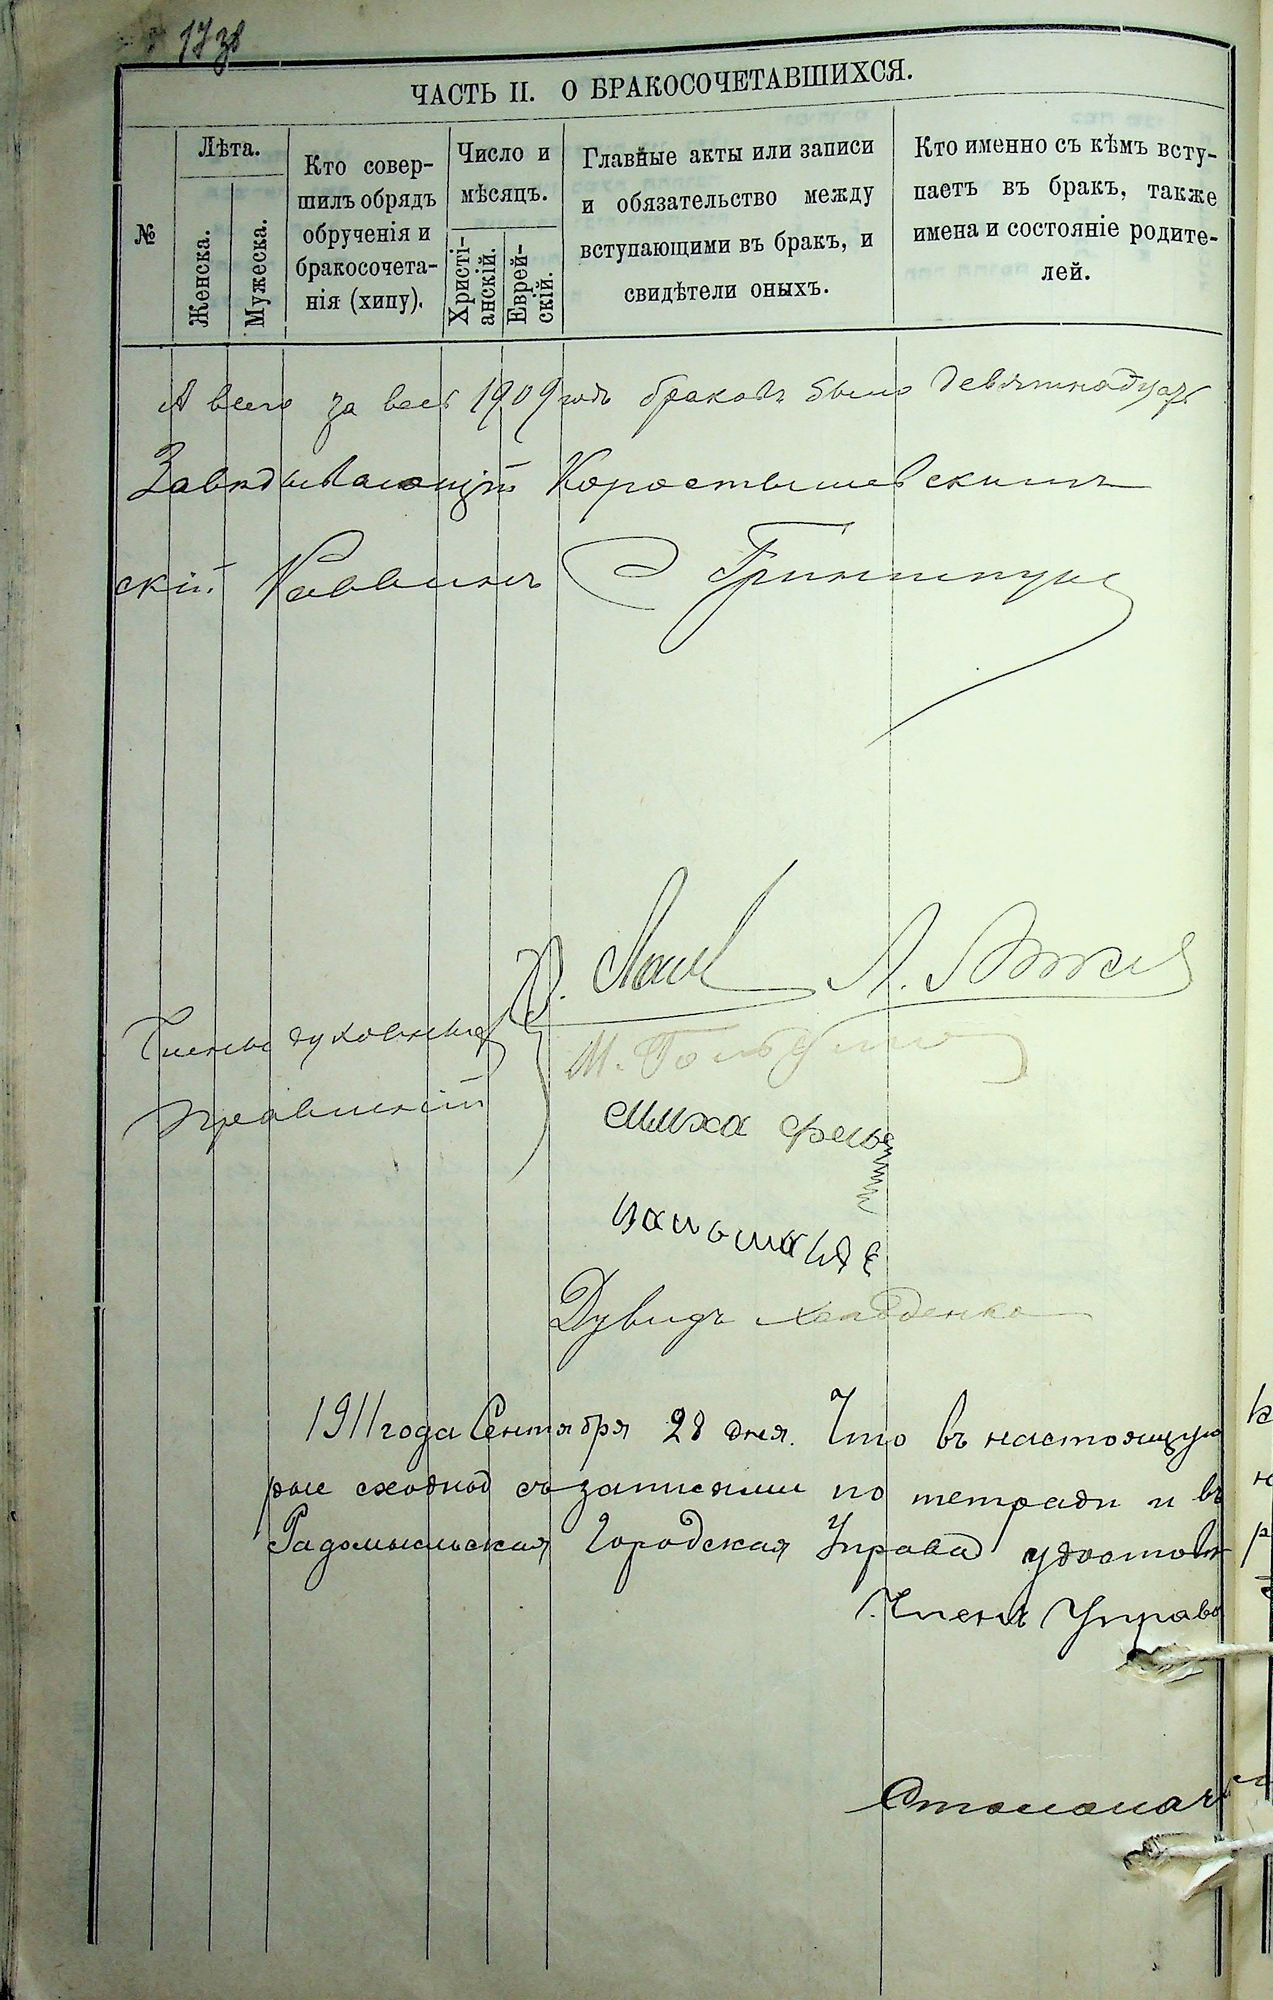 17 зв
ЧАСТЬ II. О БРАКОСОЧЕТАВШИХСЯ.
№
Лѣта.
Женска.
Мужеска.
Кто совер-
шилъ обрядъ
обрученія и
бракосочета-
нія (хипу).
Число и
мѣсяцъ.
Христі-
анскій.
Еврей-
скій.
Главные акты или записи
и обязательство между
вступающими въ бракъ, и
свидѣтели оныхъ.
Кто именно съ кѣмъ всту-
паетъ въ бракъ, также
имена и состояніе родите-
лей.
А всего за весь 1909 годъ браковъ было девятнадцать
Завѣдывающій Коростышевскимъ
скій Раввинъ Гриншпунъ
Члены духовнаго
правленій
М.
Дувидъ
1911 года Сентября 28 дня. Что въ настоящую
рые сходной съ записями по тетради и въ
Радомысльская Городская Управа удостовѣ
Членъ Управы